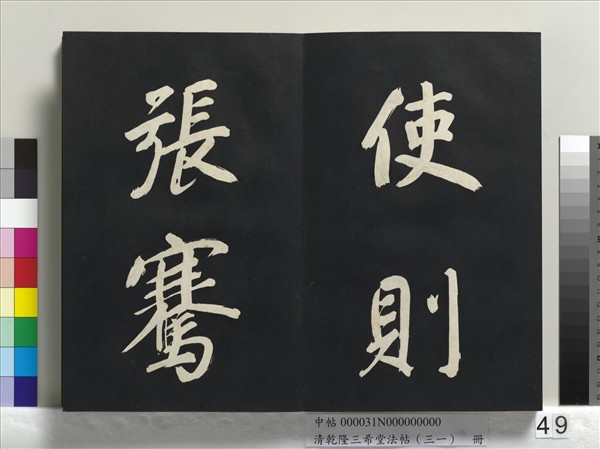 使則
張騫
中帖 000031N000000000
清乾隆三希堂法帖(三一) 冊
49